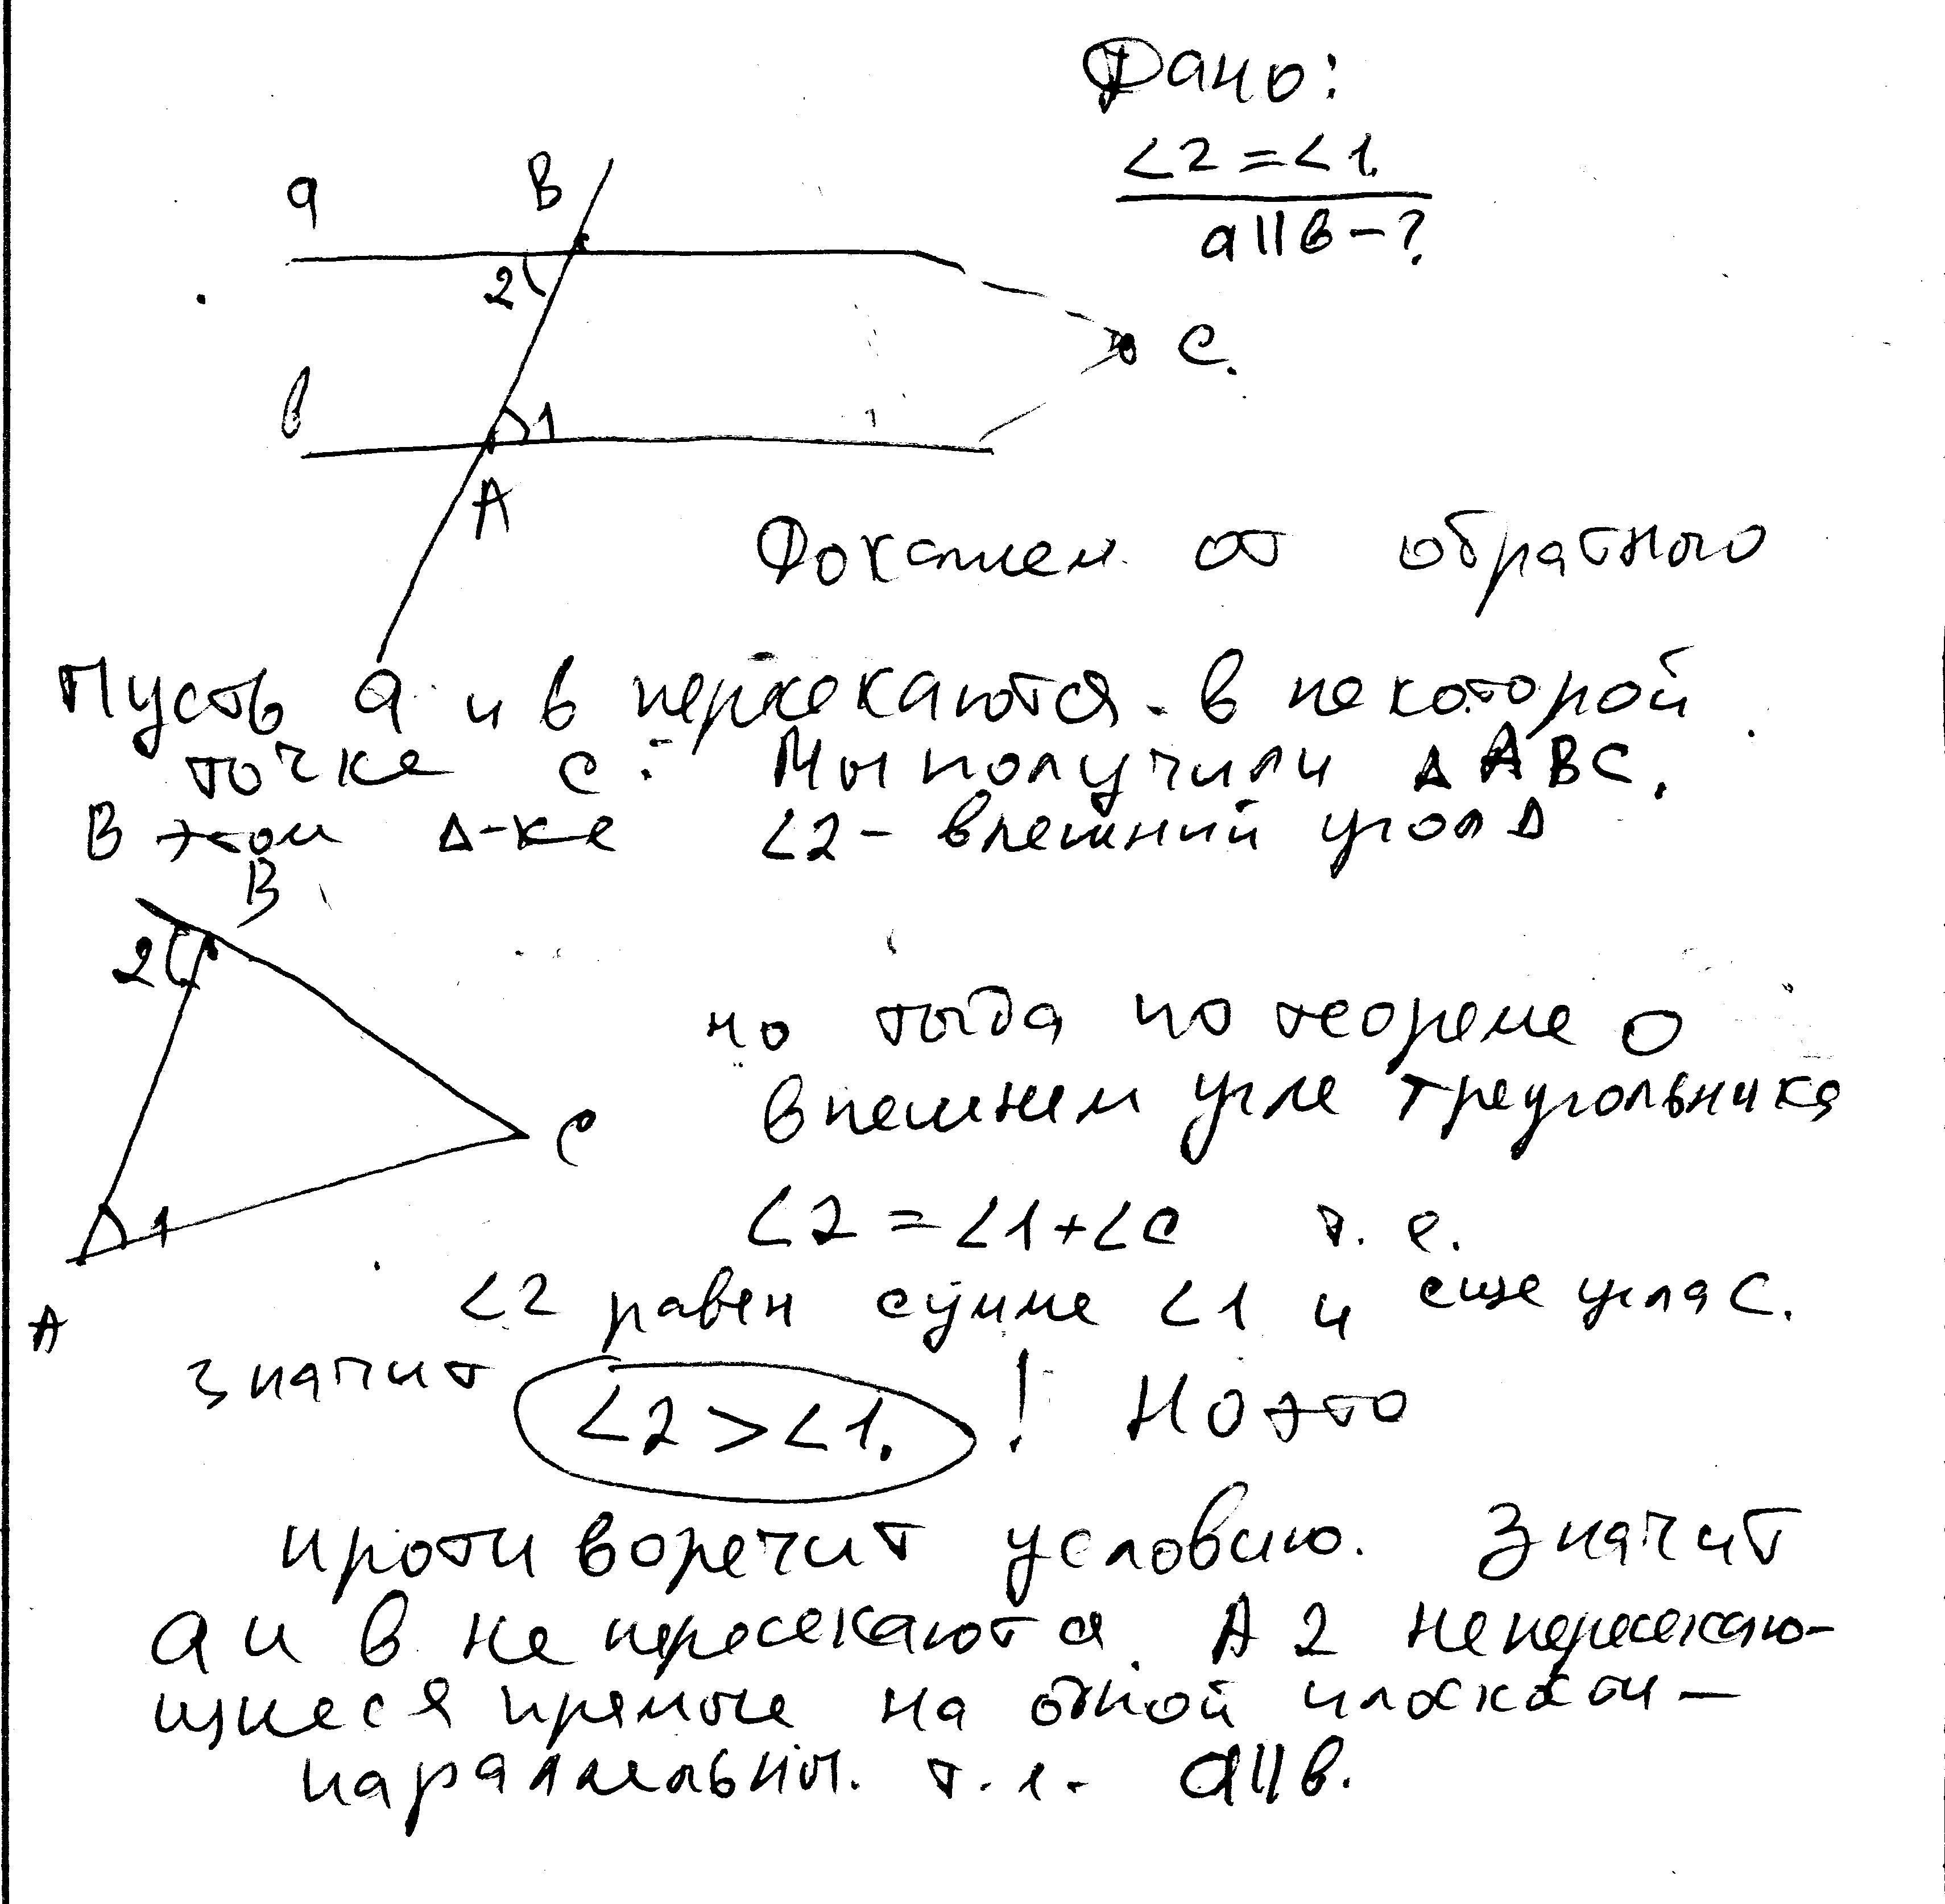 Дано:
∠2=∠1.
a||в-?
a
B
2
C.
в
1
A
Докажем от обратного
Пусть a и в пересекаются в некоторой
точке C. Мы получили ΔABC.
В этом Δ-ке ∠2- внешний угол Δ
B
2
но тогда по теореме о
внешнем угле треугольника
C
1
∠2=∠1+∠C т.е.
∠2 равен сумме ∠1 и еще угла C.
A
значит ∠2>∠1. ! Но это
противоречит условию. Значит
a и в не пересекаются. А 2 непересекаю-
щиеся прямые на одной плоскости-
параллельны. т.е. a||в.